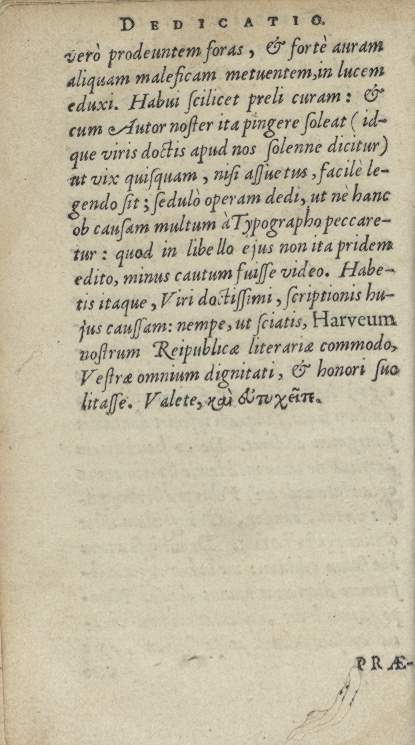 DEDICATIO.
verò prodeuntem foras, & fortè auram
aliquam maleficam metuentem, in lucem
eduxi. Habui scilicet preli curam: &
cum Autor noster ita pingere soleat (id-
que viris doctis apud nos solenne dicitur)
ut vix quisquam, nisi assuetus, facilè le-
gendo sit; sedulò operam dedi, ut nè hanc
ob causam multum à Typographo peccare-
tur: quod in libello ejus non ita pridem
edito, minus cautum fuisse video. Habe-
tis itaque, Viri doctissimi, scriptionis hu-
jus caussam: nempe, ut sciatis, Harveum
nostrum Reipublicæ literariæ commodo,
Vestræ omnium dignitati, & honori suo
litasse. Valete, καὶ εὐτυχεῖτε.
PRÆ-